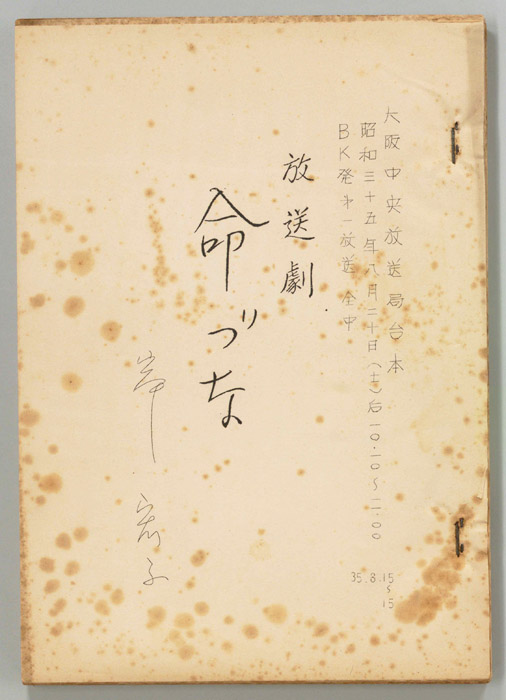 大阪中央放送局台本
昭和三十五年八月二十日(土)后一〇・一〇～一一・〇〇
BK発オ一放送 全中
放送劇
命づな
岸 宏子
35.8.15
～
15